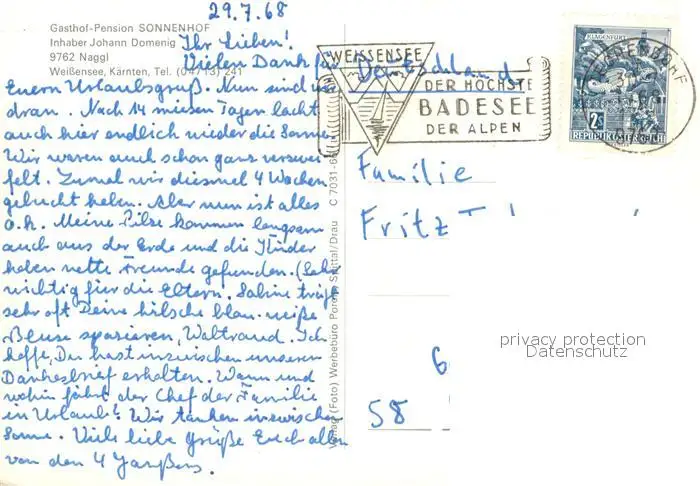 29.7.68
Gasthof-Pension SONNENHOF
Inhaber Johann Domenig
9762 Naggl
Weißensee, Kärnten, Tel. (04713) 241
Ihr Lieben!
Vielen Dank für
Euern Urlaubsgruß. Nun sind wir
dran. Nach 14 miesen Tagen lacht
auch hier endlich wieder die Sonne.
Wir waren auch schon ganz verzwei-
felt. Zumal wir diesmal 4 Wochen
gebucht haben. Aber nun ist alles
o.k. Meine Pilze kommen langsam
auch aus der Erde und die Kinder
haben nette Freunde gefunden. (Sehr
wichtig für die Eltern. Sabine trägt
sehr oft Deine hübsche blau-weiße
Bluse spazieren, Waltraud. Ich
hoffe, Du hast inzwischen unseren
Dankesbrief erhalten. Wann und
wohin fährt der Chef der Familie
in Urlaub? Wir tanken inzwischen
Sonne. Viele liebe Grüße Euch allen
von den 4
Verlag (Foto) Werbebüro Spittal/Drau C 7031-6
WEISSENSEE
DER HÖCHSTE
BADESEE
DER ALPEN
Deutschland
KLAGENFURT
2S
REPUBLIK ÖSTERREICH
Familie
Fritz
6
58
privacy protection
Datenschutz